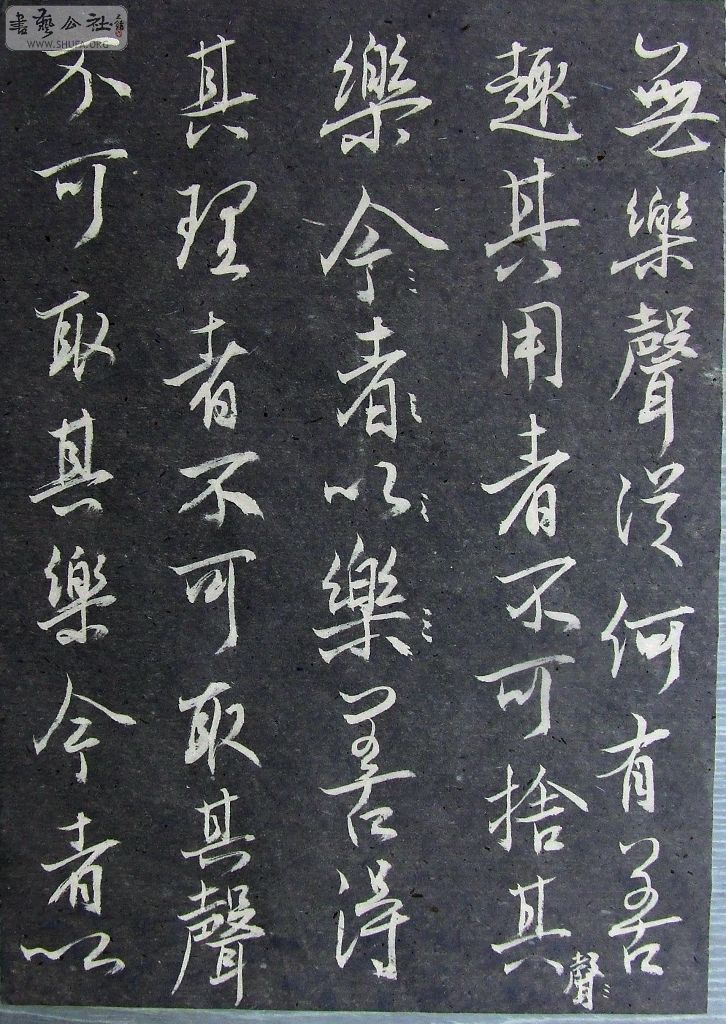 無樂聲從何有善
趣其用者不可捨其聲
樂今者以樂善得
其理者不可取其聲
不可取其樂今者以
書藝公社
WWW.SHUFA.ORG